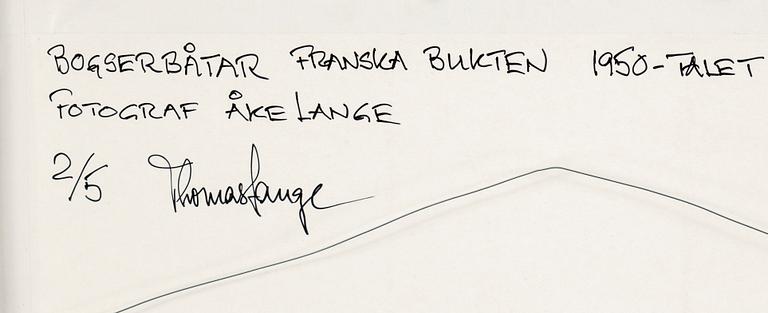 BOGSERBÅTAR FRANSKA BUKTEN 1950-TALET
FOTOGRAF ÅKE LANGE
2/5 Thomas Lange